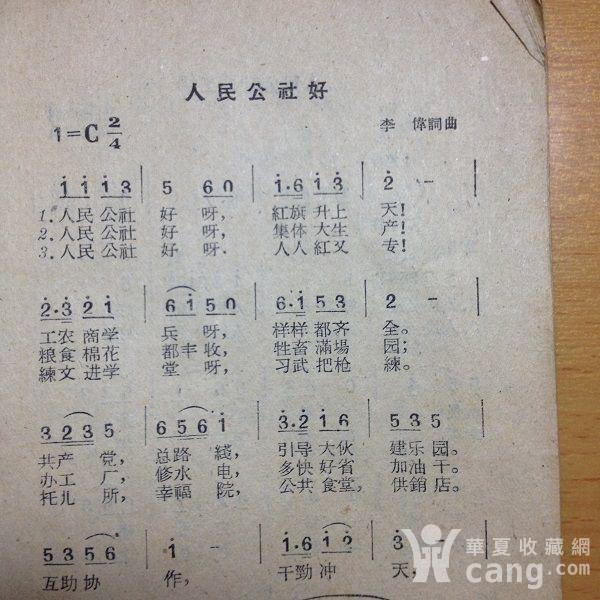 人民公社好
1=C 2/4
李 偉詞曲
i i i 3̇ | 5 6 0 | i·6 i 3̇ | 2̇ － |
1.人民 公社 好 呀， 紅旗 升上 天！
2.人民 公社 好 呀． 集体 大生 产！
3.人民 公社 好 呀． 人人 紅又 专！
2̇·3̇ 2̇ i | 6 i 5 0 | 6·i 5 3 | 2 － |
工农 商学 兵 呀， 样样 都齐 全。
粮食 棉花 都丰 收， 牲畜 滿場 园；
練文 进学 堂 呀， 习武 把枪 練。
3 2 3 5 | 6 5 6 i | 3̇·2̇ i 6 | 5 3 5 |
共产 党， 总路 綫， 引导 大伙 建乐 园。
办工 厂， 修水 电， 多快 好省 加油 干。
托儿 所， 幸福 院， 公共 食堂， 供銷 店。
5 3 5 6 | i － | i·6 i 2̇ | 3̇ － |
互助 协 作， 干劲 冲 天，
華夏收藏網
cang.com